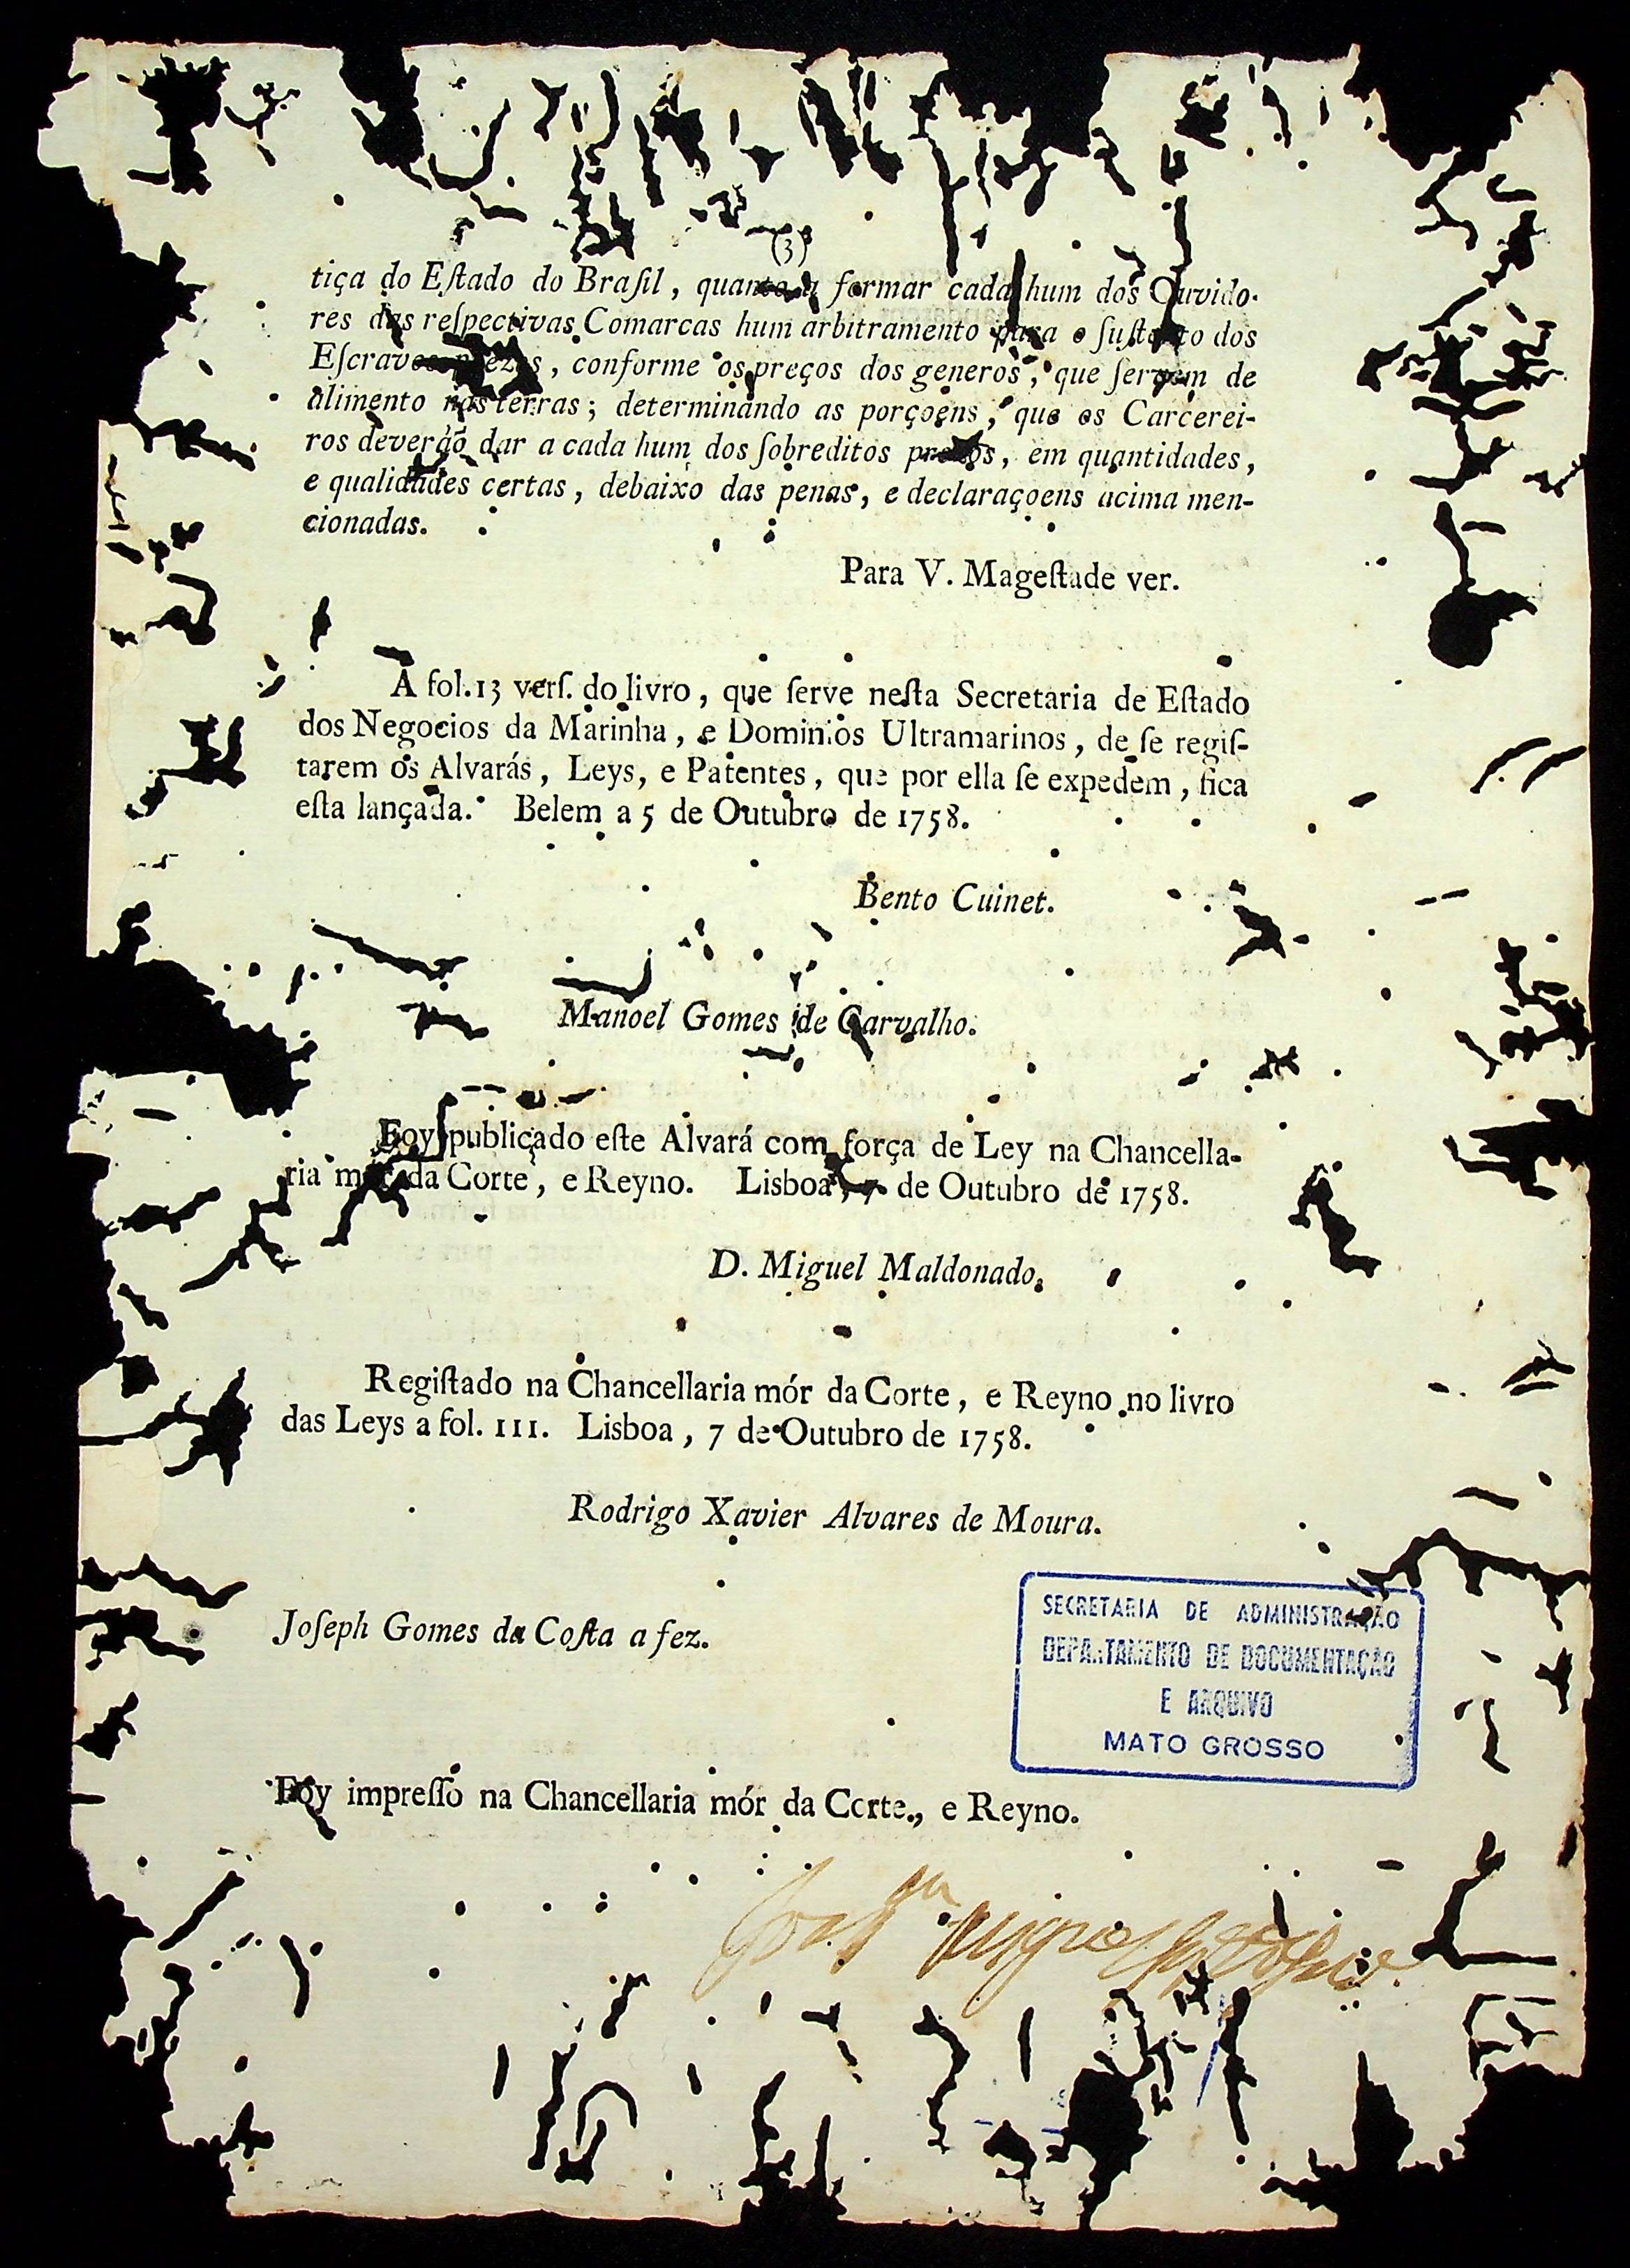 (3)
tiça do Eſtado do Braſil, quanto a formar cada hum dos Ouvido-
res das reſpectivas Comarcas hum arbitramento para o ſuſtento dos
Eſcravos prezos, conforme os preços dos generos, que ſervem de
alimento nas terras; determinando as porçoens, que os Carcerei-
ros deveráõ dar a cada hum dos ſobreditos prezos, em quantidades,
e qualidades certas, debaixo das penas, e declaraçoens acima men-
cionadas.
Para V. Mageſtade ver.
A fol. 13 verſ. do livro, que ſerve neſta Secretaria de Eſtado
dos Negocios da Marinha, e Dominios Ultramarinos, de ſe regiſ-
tarem os Alvarás, Leys, e Patentes, que por ella ſe expedem, fica
eſta lançada. Belem a 5 de Outubro de 1758.
Bento Cuinet.
Manoel Gomes de Carvalho.
Foy publicado eſte Alvará com força de Ley na Chancella-
ria mór da Corte, e Reyno. Lisboa, 7 de Outubro de 1758.
D. Miguel Maldonado.
Regiſtado na Chancellaria mór da Corte, e Reyno no livro
das Leys a fol. 111. Lisboa, 7 de Outubro de 1758.
Rodrigo Xavier Alvares de Moura.
Joſeph Gomes da Coſta a fez.
SECRETARIA DE ADMINISTRAÇÃO
DEPARTAMENTO DE DOCUMENTAÇÃO
E ARQUIVO
MATO GROSSO
Foy impreſſo na Chancellaria mór da Corte, e Reyno.